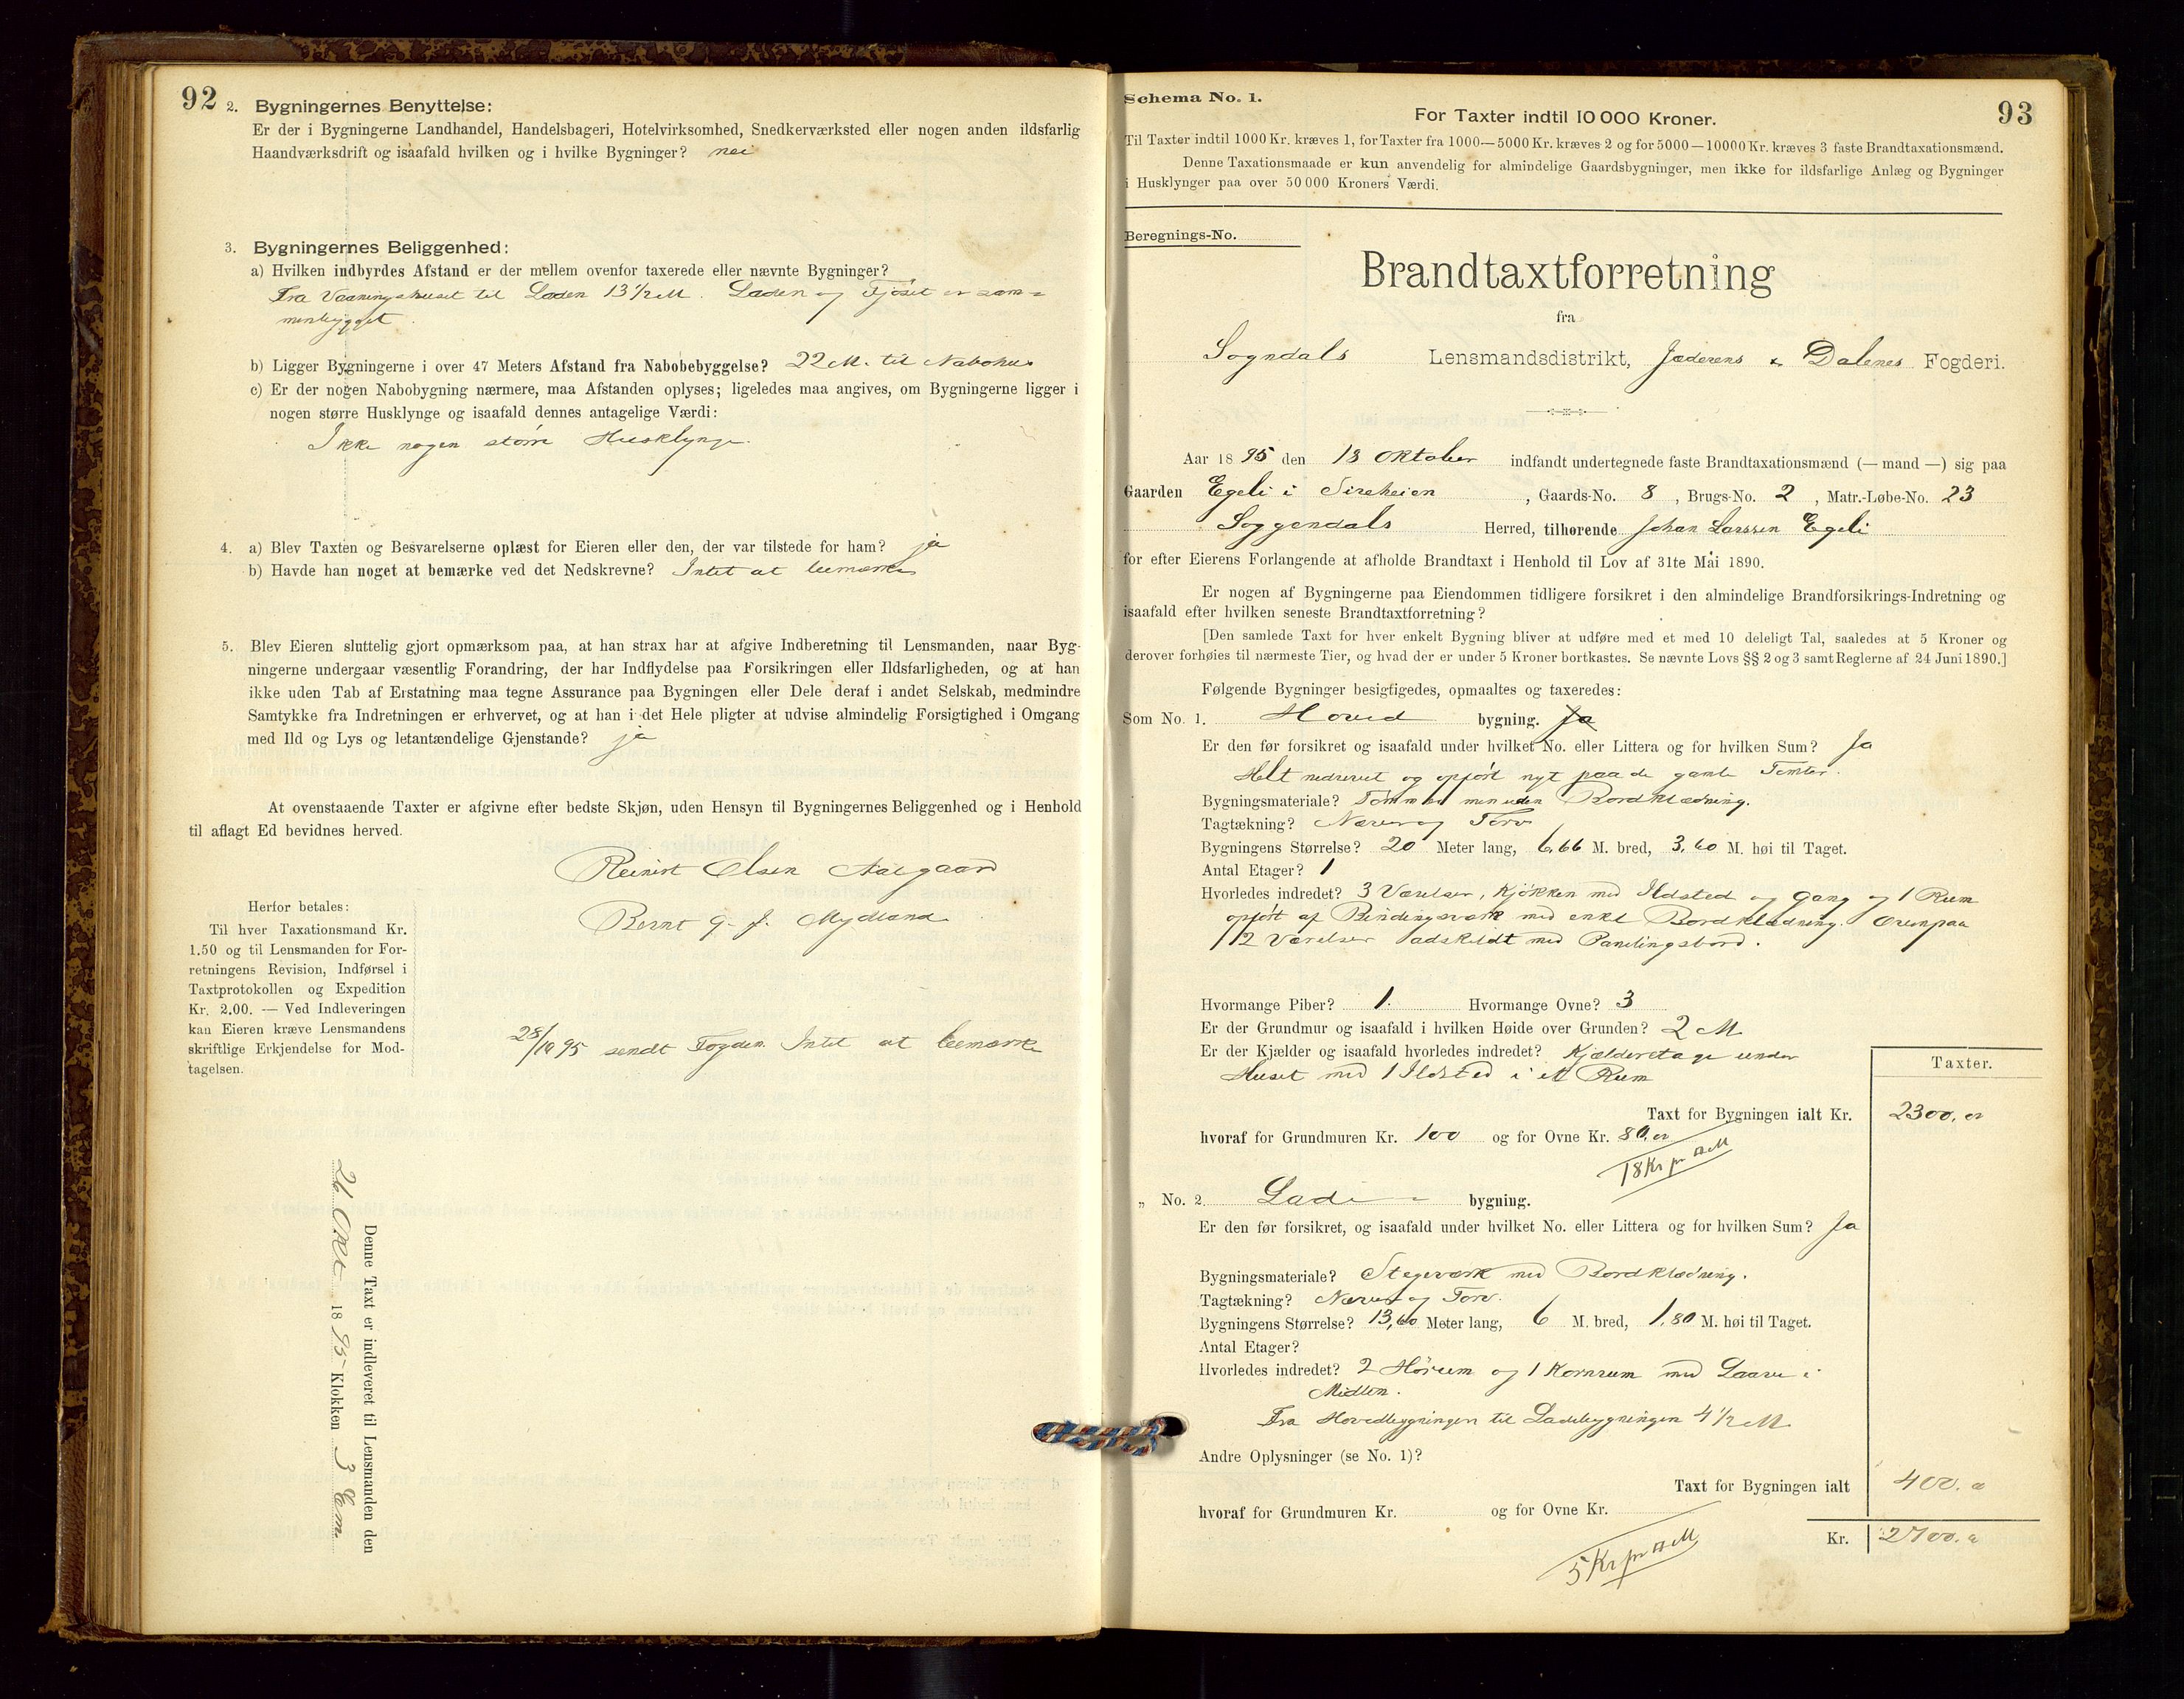 92
2. Bygningernes Benyttelse:
Er der i Bygningerne Landhandel, Handelsbageri, Hotelvirksomhed, Snedkerværksted eller nogen anden ildsfarlig
Haandværksdrift og isaafald hvilken og i hvilke Bygninger? nei
3. Bygningernes Beliggenhed:
a) Hvilken indbyrdes Afstand er der mellem ovenfor taxerede eller nævnte Bygninger?
Fra Vaaningshuset til Laden 13½ M. Laden og Fjøset er sam=
menbygget.
b) Ligger Bygningerne i over 47 Meters Afstand fra Nabobebyggelse? 22 M. til Nabohus
c) Er der nogen Nabobygning nærmere, maa Afstanden oplyses; ligeledes maa angives, om Bygningerne ligger i
nogen større Husklynge og isaafald dennes antagelige Værdi:
Ikke nogen større Husklynge.
4. a) Blev Taxten og Besvarelserne oplæst for Eieren eller den, der var tilstede for ham? ja
b) Havde han noget at bemærke ved det Nedskrevne? Intet at bemærke
5. Blev Eieren sluttelig gjort opmærksom paa, at han strax har at afgive Indberetning til Lensmanden, naar Byg-
ningerne undergaar væsentlig Forandring, der har Indflydelse paa Forsikringen eller Ildsfarligheden, og at han
ikke uden Tab af Erstatning maa tegne Assurance paa Bygningen eller Dele deraf i andet Selskab, medmindre
Samtykke fra Indretningen er erhvervet, og at han i det Hele pligter at udvise almindelig Forsigtighed i Omgang
med Ild og Lys og letantændelige Gjenstande? ja
At ovenstaaende Taxter er afgivne efter bedste Skjøn, uden Hensyn til Bygningernes Beliggenhed og i Henhold
til aflagt Ed bevidnes herved.
Reinert Olsen Aaegaard
Bernt G. J. Mydland
Herfor betales:
Til hver Taxationsmand Kr.
1.50 og til Lensmanden for For-
retningens Revision, Indførsel i
Taxtprotokollen og Expedition
Kr. 2.00. — Ved Indleveringen
kan Eieren kræve Lensmandens
skriftlige Erkjendelse for Mod-
tagelsen.
28/10 95 sendt Fogden. Intet at bemærke
Denne Taxt er indleveret til Lensmanden den
26 Okt 1895 Klokken 3 Em.
93
Schema No. 1.
For Taxter indtil 10 000 Kroner.
Til Taxter indtil 1000 Kr. kræves 1, for Taxter fra 1000—5000 Kr. kræves 2 og for 5000—10000 Kr. kræves 3 faste Brandtaxationsmænd.
Denne Taxationsmaade er kun anvendelig for almindelige Gaardsbygninger, men ikke for ildsfarlige Anlæg og Bygninger
i Husklynger paa over 50 000 Kroners Værdi.
Beregnings-No.
Brandtaxtforretning
fra
Sogndals Lensmandsdistrikt, Jæderens & Dalenes Fogderi.
Aar 1895 den 13 Oktober indfandt undertegnede faste Brandtaxationsmænd (— mand —) sig paa
Gaarden Egeli i Sireheien, Gaards-No. 8, Brugs-No. 2, Matr.-Løbe-No. 23
Soggendals Herred, tilhørende Johan Larssen Egeli
for efter Eierens Forlangende at afholde Brandtaxt i Henhold til Lov af 31te Mai 1890.
Er nogen af Bygningerne paa Eiendommen tidligere forsikret i den almindelige Brandforsikrings-Indretning og
isaafald efter hvilken seneste Brandtaxtforretning?
[Den samlede Taxt for hver enkelt Bygning bliver at udføre med et med 10 deleligt Tal, saaledes at 5 Kroner og
derover forhøies til nærmeste Tier, og hvad der er under 5 Kroner bortkastes. Se nævnte Lovs §§ 2 og 3 samt Reglerne af 24 Juni 1890.]
Følgende Bygninger besigtigedes, opmaaltes og taxeredes:
Som No. 1. Hoved bygning. Ja
Er den før forsikret og isaafald under hvilket No. eller Littera og for hvilken Sum? Ja
Helt nedrevet og opført nyt paa de gamle Tomter.
Bygningsmateriale? Tømmer men uden Bordklædning.
Tagtækning? Næver og Torv
Bygningens Størrelse? 20 Meter lang, 6,66 M. bred, 3,60 M. høi til Taget.
Antal Etager? 1
Hvorledes indredet? 3 Værelser, Kjøkken med Ildsted og Gang og 1 Rum
opført af Bindingsværk med enkl Bordklædning. Ovenpaa
2 Værelser adskildt med Panelingsbord.
Hvormange Piber? 1. Hvormange Ovne? 3
Er der Grundmur og isaafald i hvilken Høide over Grunden? 2 M
Er der Kjælder og isaafald hvorledes indredet? Kjælderetage under
Huset med 1 Ildsted i et Rum
Taxter.
Taxt for Bygningen ialt Kr. 2300. 00
hvoraf for Grundmuren Kr. 100 og for Ovne Kr. 80. 00
18 Kr pr □ M
„ No. 2. Lade- bygning.
Er den før forsikret, og isaafald under hvilket No. eller Littera og for hvilken Sum? Ja
Bygningsmateriale? Stegeværk med Bordklædning.
Tagtækning? Næver og Torv.
Bygningens Størrelse? 13,60 Meter lang, 6 M. bred, 1,80 M. høi til Taget.
Antal Etager?
Hvorledes indredet? 2 Hørum og 1 Kornrum med Laave i
Midten.
Fra Hovedbygningen til Ladebygningen 4½ M
Andre Oplysninger (se No. 1)?
Taxt for Bygningen ialt 400.
hvoraf for Grundmuren Kr. og for Ovne Kr.
Kr. 2700.
5 Kr pr □ M